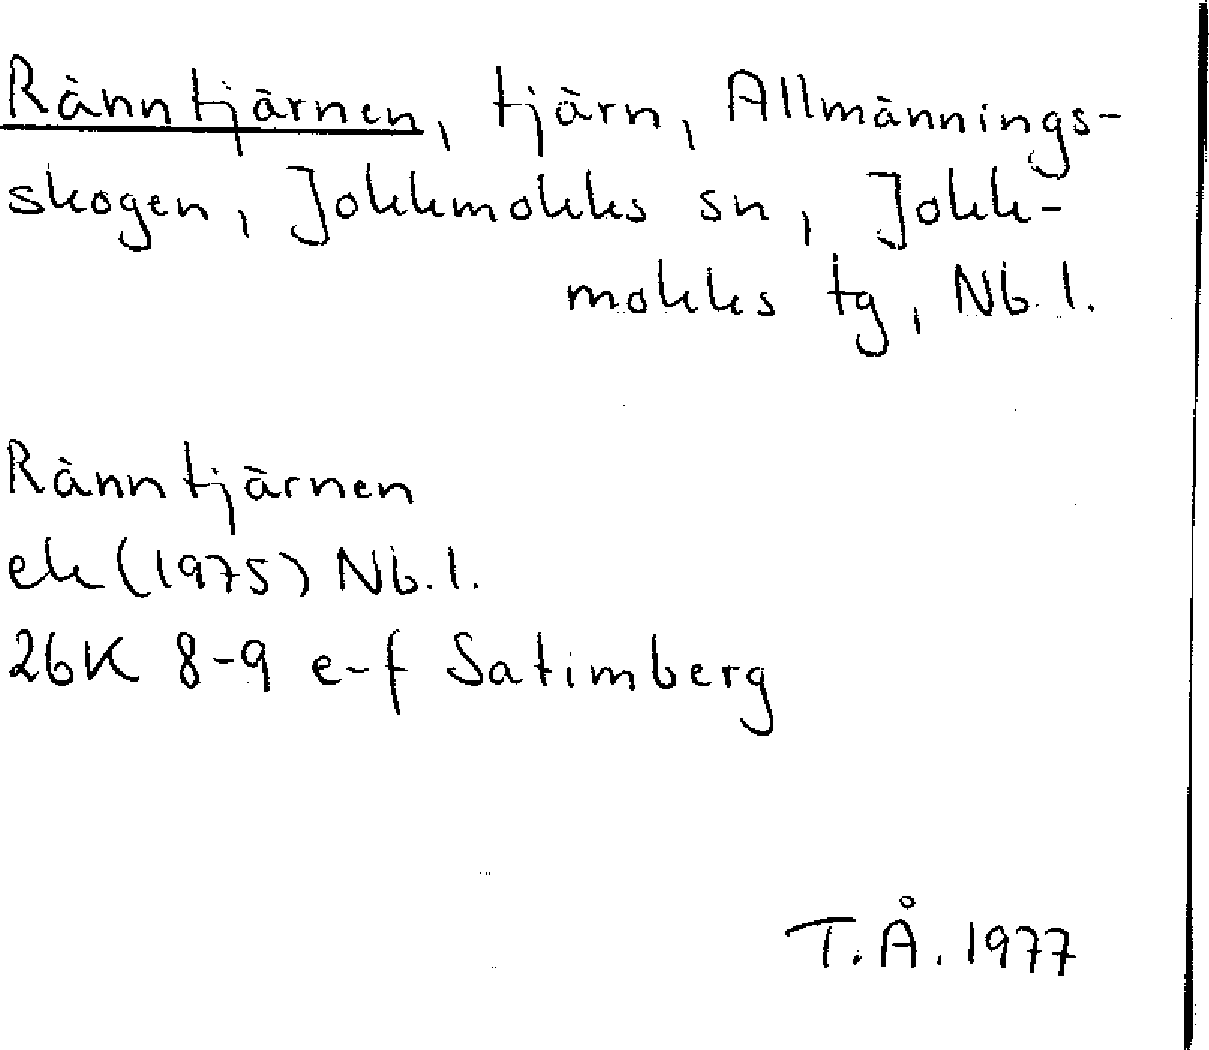 Ränntjärnen, tjärn, Allmännings-
skogen, Jokkmokks sn, Jokk-
mokks tg, Nb. l.
Ränntjärnen
ek (1975) Nb. l.
26K 8-9 e-f Satimberg
T. Å. 1977